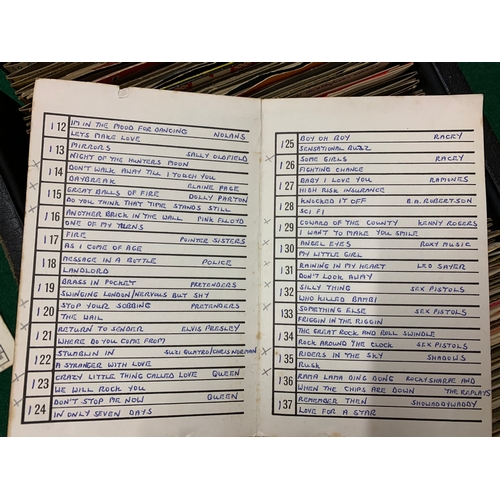 112 I'M IN THE MOOD FOR DANCING NOLANS
LETS MAKE LOVE
113 MIRRORS SALLY OLDFIELD
NIGHT OF THE HUNTERS MOON
114 DON'T WALK AWAY TILL I TOUCH YOU
DAYBREAK ELAINE PAGE
115 GREAT BALLS OF FIRE DOLLY PARTON
DO YOU THINK THAT TIME STANDS STILL
116 ANOTHER BRICK IN THE WALL PINK FLOYD
ONE OF MY TURNS
117 FIRE POINTER SISTERS
AS I COME OF AGE
118 MESSAGE IN A BOTTLE POLICE
LANDLORD
119 BRASS IN POCKET PRETENDERS
SWINGING LONDON/NERVOUS BUT SHY
120 STOP YOUR SOBBING PRETENDERS
THE WAIL
121 RETURN TO SENDER ELVIS PRESLEY
WHERE DO YOU COME FROM
122 STUMBLIN IN SUZI QUATRO/CHRIS NORMAN
A STRANGER WITH LOVE
123 CRAZY LITTLE THING CALLED LOVE QUEEN
WE WILL ROCK YOU
124 DON'T STOP ME NOW QUEEN
IN ONLY SEVEN DAYS
125 BOY OH BOY RACEY
SENSATIONAL BUZZ
126 SOME GIRLS RACEY
FIGHTING CHANCE
127 BABY I LOVE YOU RAMONES
HIGH RISK INSURANCE
128 KNOCKED IT OFF B.A. ROBERTSON
SCI FI
129 COWARD OF THE COUNTY KENNY ROGERS
I WANT TO MAKE YOU SMILE
130 ANGEL EYES ROXY MUSIC
MY LITTLE GIRL
131 RAINING IN MY HEART LEO SAYER
DON'T LOOK AWAY
132 SILLY THING SEX PISTOLS
WHO KILLED BAMBI
133 SOMETHING ELSE SEX PISTOLS
FRIGGIN IN THE RIGGIN
134 THE GREAT ROCK AND ROLL SWINDLE
ROCK AROUND THE CLOCK SEX PISTOLS
135 RIDERS IN THE SKY SHADOWS
RUSK
136 RAMA LAMA DING DONG ROCKY SHARPE AND
WHEN THE CHIPS ARE DOWN THE REPLAYS
137 REMEMBER THEN SHOWADDYWADDY
LOVE FOR A STAR